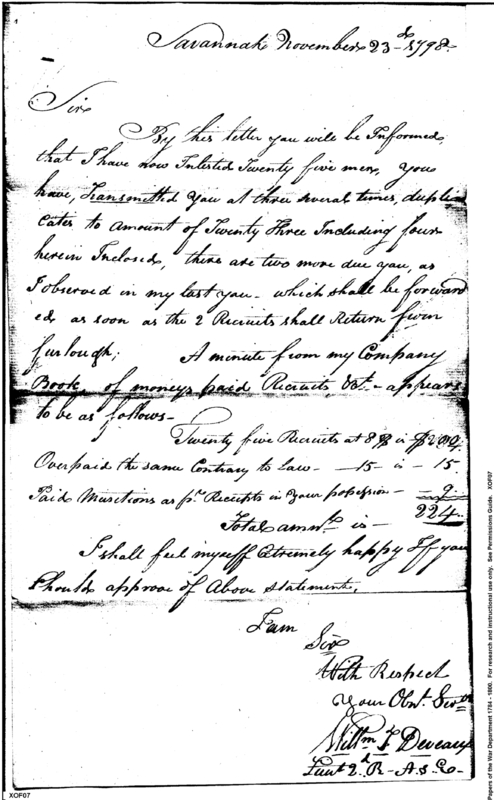 Savannah November 23d 1798
Sir
By this letter you will be Informed,
that I have now Inlisted Twenty five men, you
have, Transmitted You at three several times, dupli
cates to amount of Twenty Three Including four
herein Inclosed, there are two more due you, as
I observed in my last you - which shall be forward
ed as soon as the 2 Recruits shall Return from
furlough; A minute from my Company
Book, of moneys paid Recruits &c - appears
to be as follows -
Twenty five Recruits at 8 $ is $200,
Overpaid the same Contrary to law - 15 - is - 15
Paid Musitions as pr Receipts in Your possession - 9
Total amnt is - 224
I shall feel myself Extremely happy If you
Should approve of Above statement,
I am
Sir
With Respect
Your Obnt Servt
Willm F Deveaux
Lieut 2d R - A. & E -
XOF07
Papers of the War Department 1784 - 1800. For research and instructional use only. See Permissions Guide. XOF07